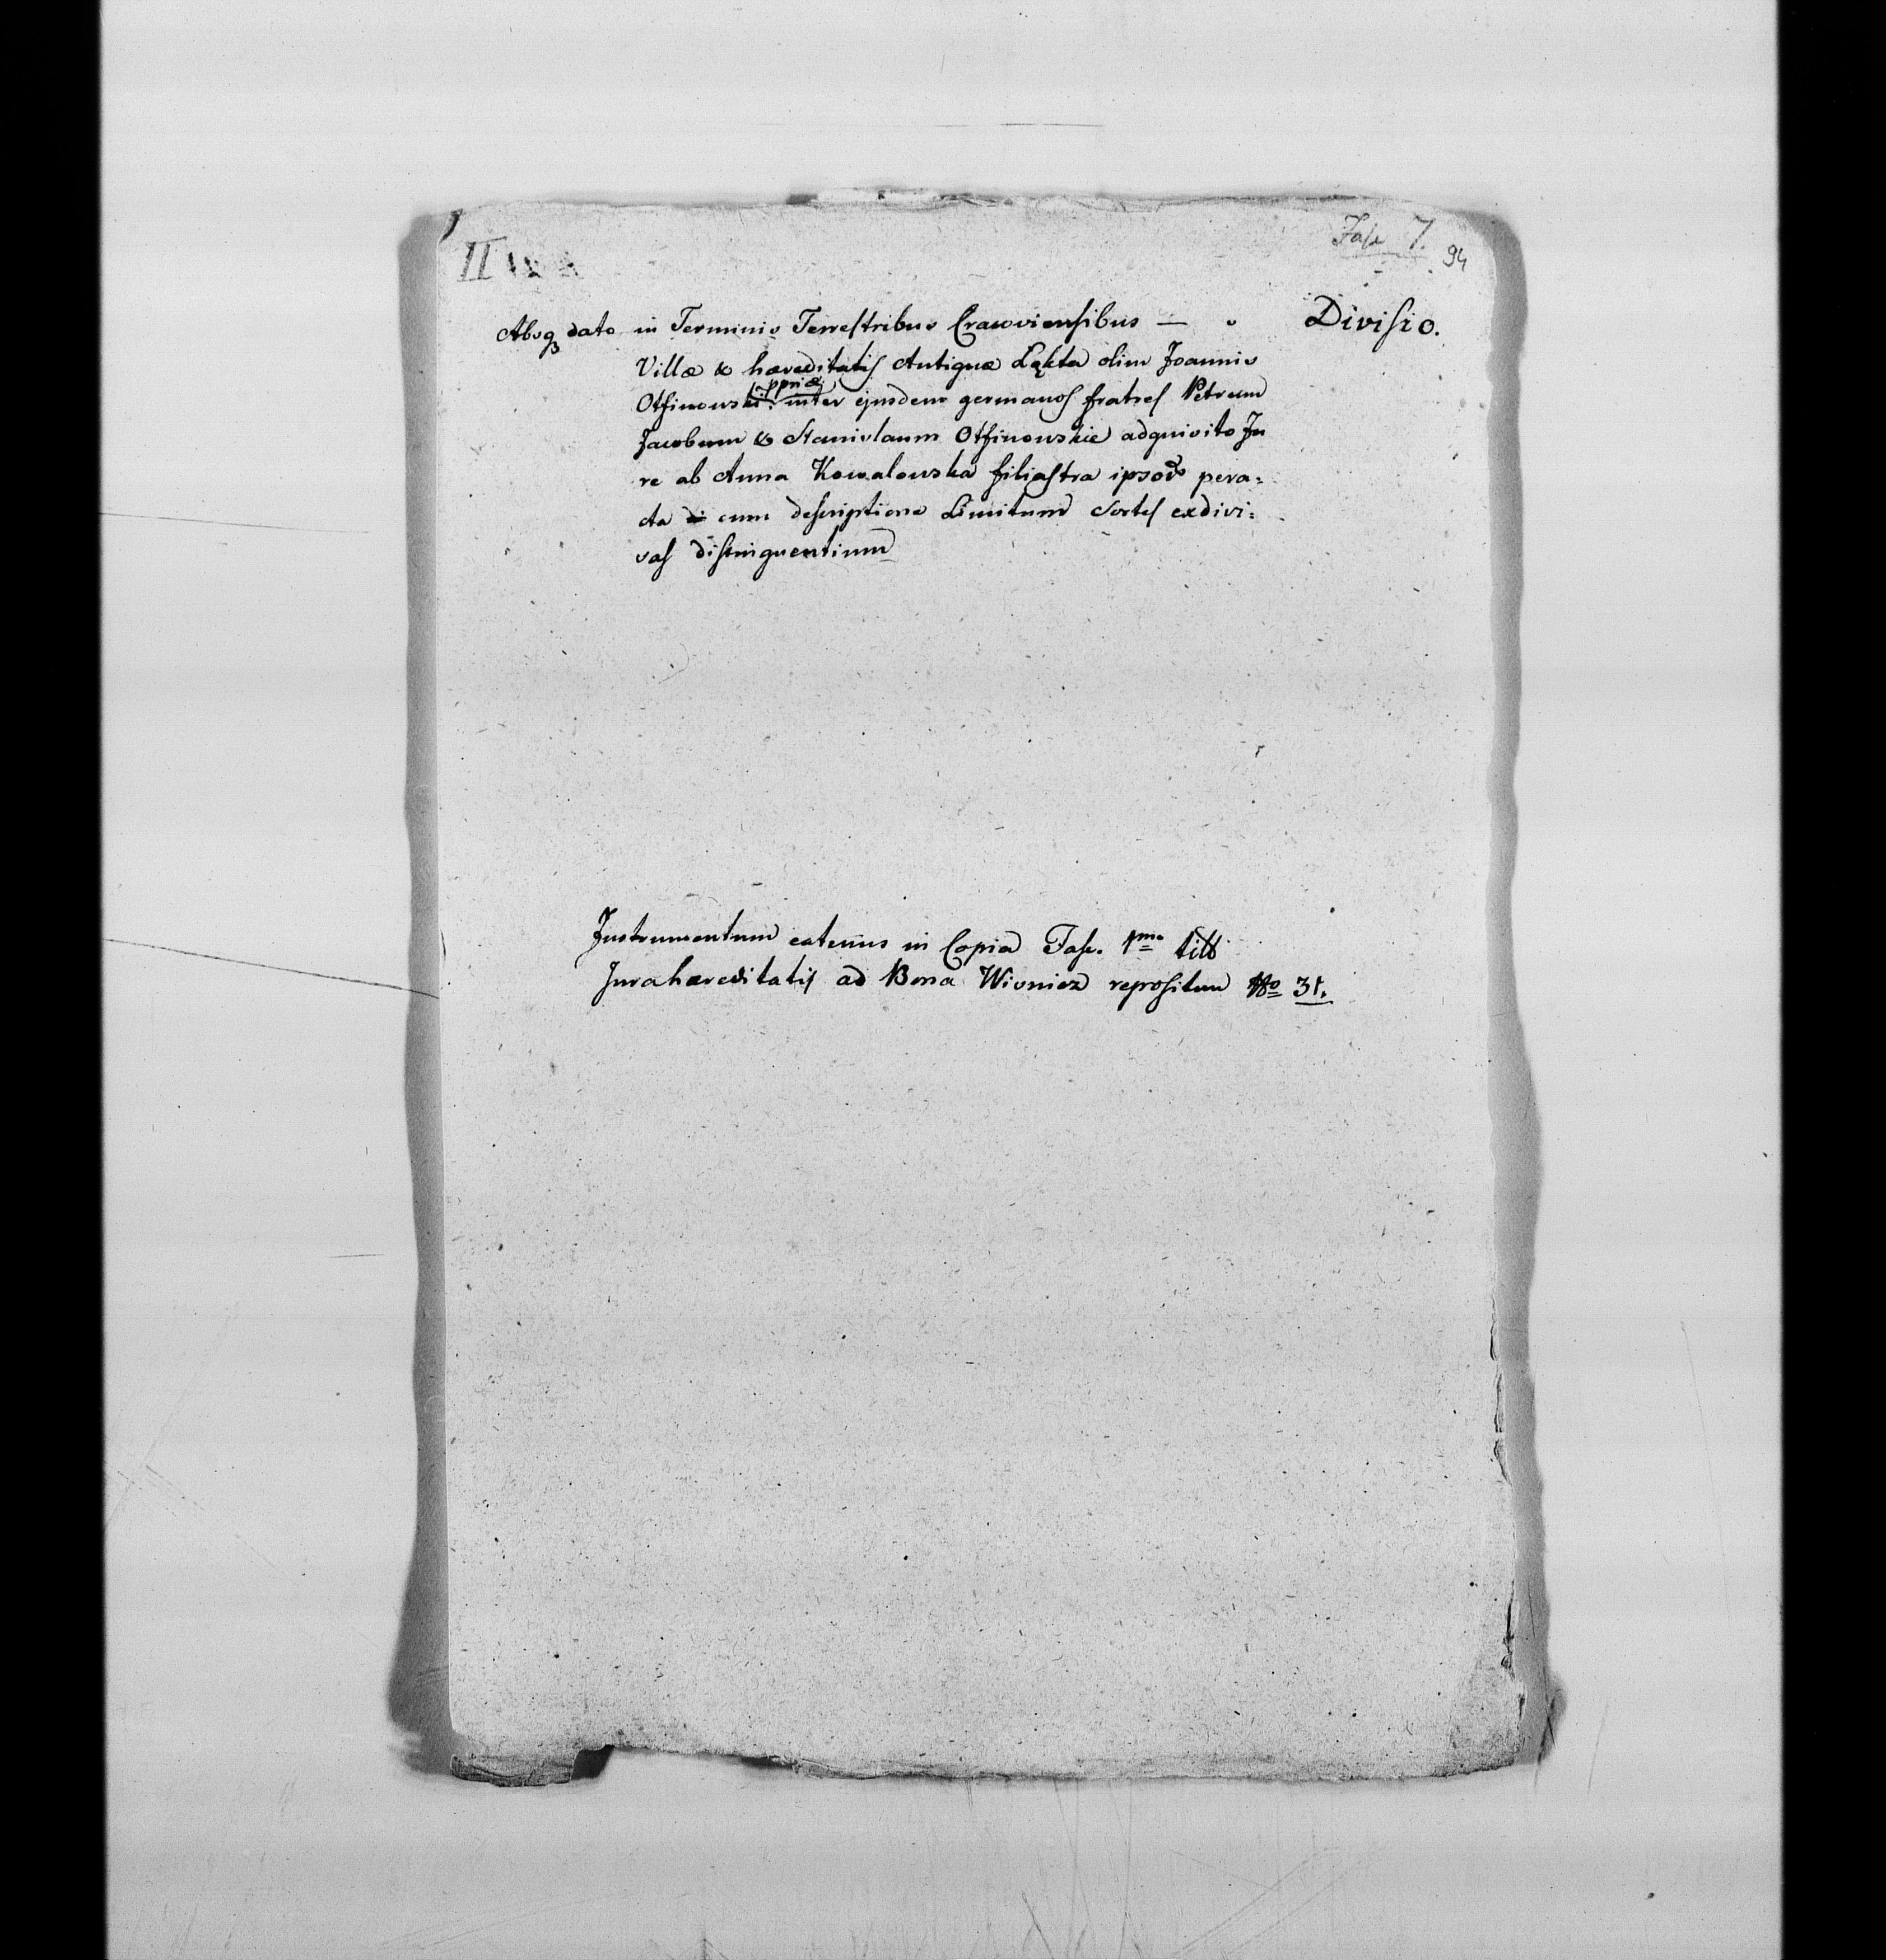 II
Fasc 7. 94
Absqꝫ dato in Terminis Terrestribus Cracoviensibus — Divisio.
Villæ & hæreditatis Antiquæ Łąkta olim Joannis
ppriæ
Otfinowski inter ejusdem germanos fratres Petrum
Jacobum & Stanislaum Otfinowskie adquisito Ju
re ab Anna Kowalowska filiastra ipsor pera=
cta cum descriptione Limitum Sortes exdivi=
sas distinguentium
Instrumentum eatenus in Copia Fasc. 1mo titt
Jura hæreditatis ad Bona Wisnicz repositum No 31.